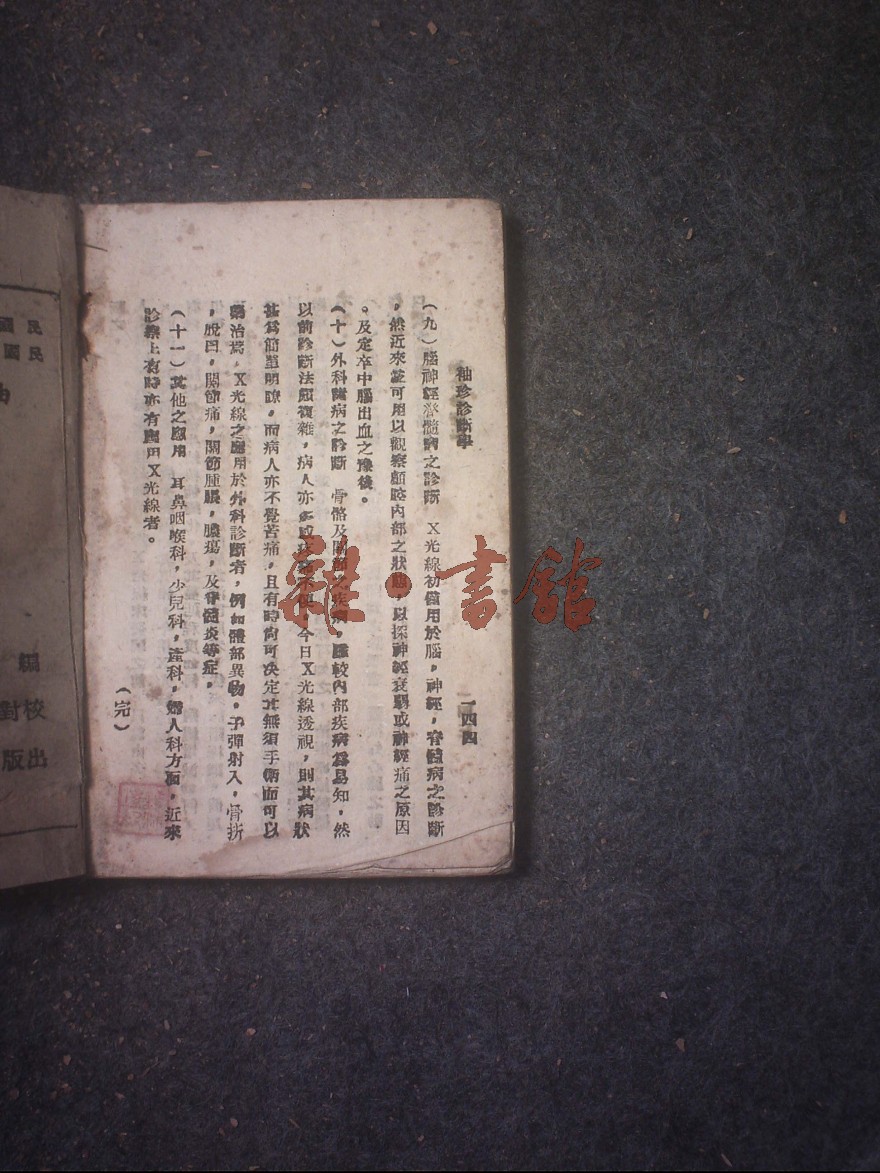 袖珍診斷學 一四四
(九)腦神經脊髓病之診斷 X光線初僅用於腦,神經,脊髓病之診斷
,然近來並可用以觀察顱腔內部之狀態,以探神經衰弱或神經痛之原因
。及定卒中腦出血之豫後。
(十)外科諸病之診斷 骨骼及關節之疾病,雖較內部疾病為易知,然
以前診斷法頗複雜,病人亦多感疼痛不便,今日X光線透視,則其病狀
甚為簡單明瞭,而病人亦不覺苦痛,且有時尚可决定其無須手術而可以
治焉,X光線之應用於外科診斷者,例如體部異物,子彈射入,骨折
,脫臼,關節痛,關節腫脹,膿瘍,及骨髓炎等症,
(十一)其他之應用 耳鼻咽喉科,少兒科,產科,婦人科方面,近來
診察上有時亦有應用X光線者。
(完)
國民
國民
編
對校
版出
雜·書館